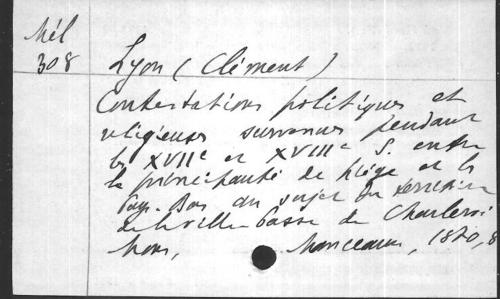 Mél
308
Lyon (Clément)
Contestations politiques et
religieuses survenues pendant
les XVIIe et XVIIIe S. entre
la principauté de Liége et les
Pays-Bas au sujet du territoire
de la ville basse de Charleroi
Mons, Manceaux, 1870, 8